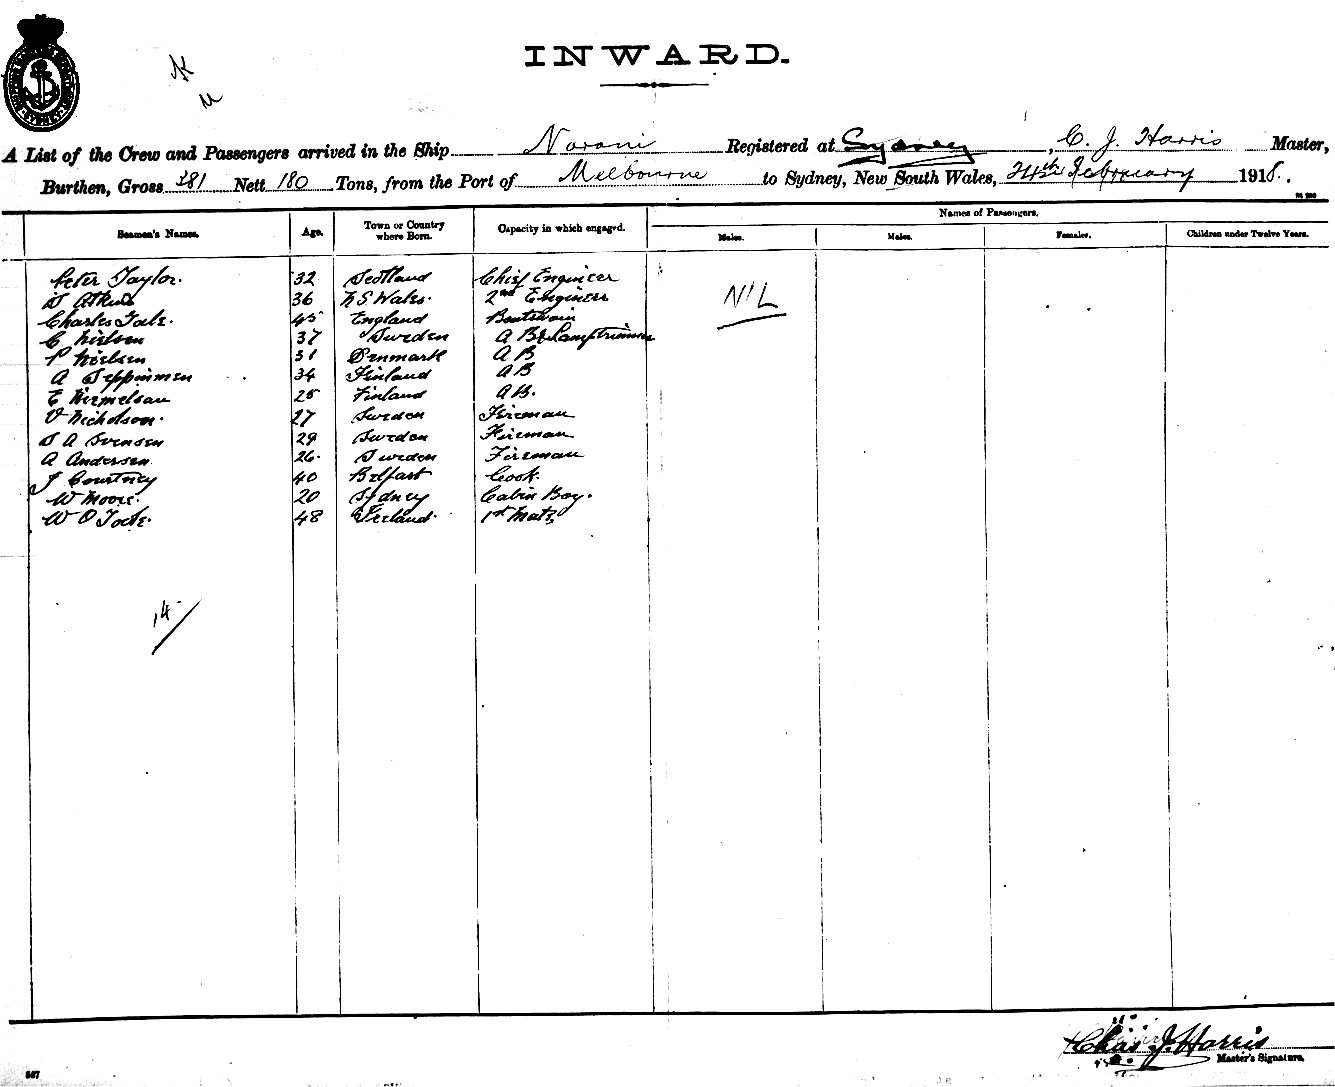 INWARD.
A List of the Crew and Passengers arrived in the Ship Norani Registered at Sydney, C. J. Harris Master,
Burthen, Gross 381 Nett 180 Tons, from the Port of Melbourne to Sydney, New South Wales, 24th February 1918.
Names of Passengers.
Seamen's Names. Age. Town or Country where Born. Capacity in which engaged. Males. Males. Females. Children under Twelve Years.
Peter Taylor. 32 Scotland Chief Engineer
36 N S Wales. 2nd Engineer
NIL
Charles 45 England Boatswain
C Nielson 37 Sweden A B & Lamptrimmer
P Nielsen 31 Denmark A B
A 34 Finland A B
E 25 Finland A B.
V Nicholson. 27 Sweden Fireman
S A Svensen 29 Sweden Fireman
A Andersen 26. Sweden Fireman
J Courtney 40 Belfast Cook.
W Moore. 20 Sydney Cabin Boy.
W O 48 Ireland. 1st Mate
14
Chas J. Harris
Master's Signature.